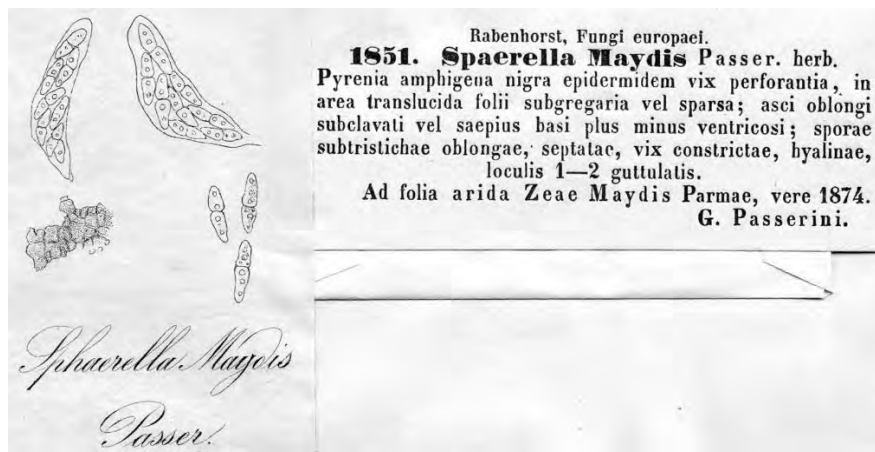 Rabenhorst, Fungi europaei.
1851. Spaerella Maydis Passer. herb.
Pyrenia amphigena nigra epidermidem vix perforantia, in
area translucida folii subgregaria vel sparsa; asci oblongi
subclavati vel saepius basi plus minus ventricosi; sporae
subtristichae oblongae, septatae, vix constrictae, hyalinae,
loculis 1—2 guttulatis.
Ad folia arida Zeae Maydis Parmae, vere 1874.
G. Passerini.
Sphaerella Maydis
Passer.